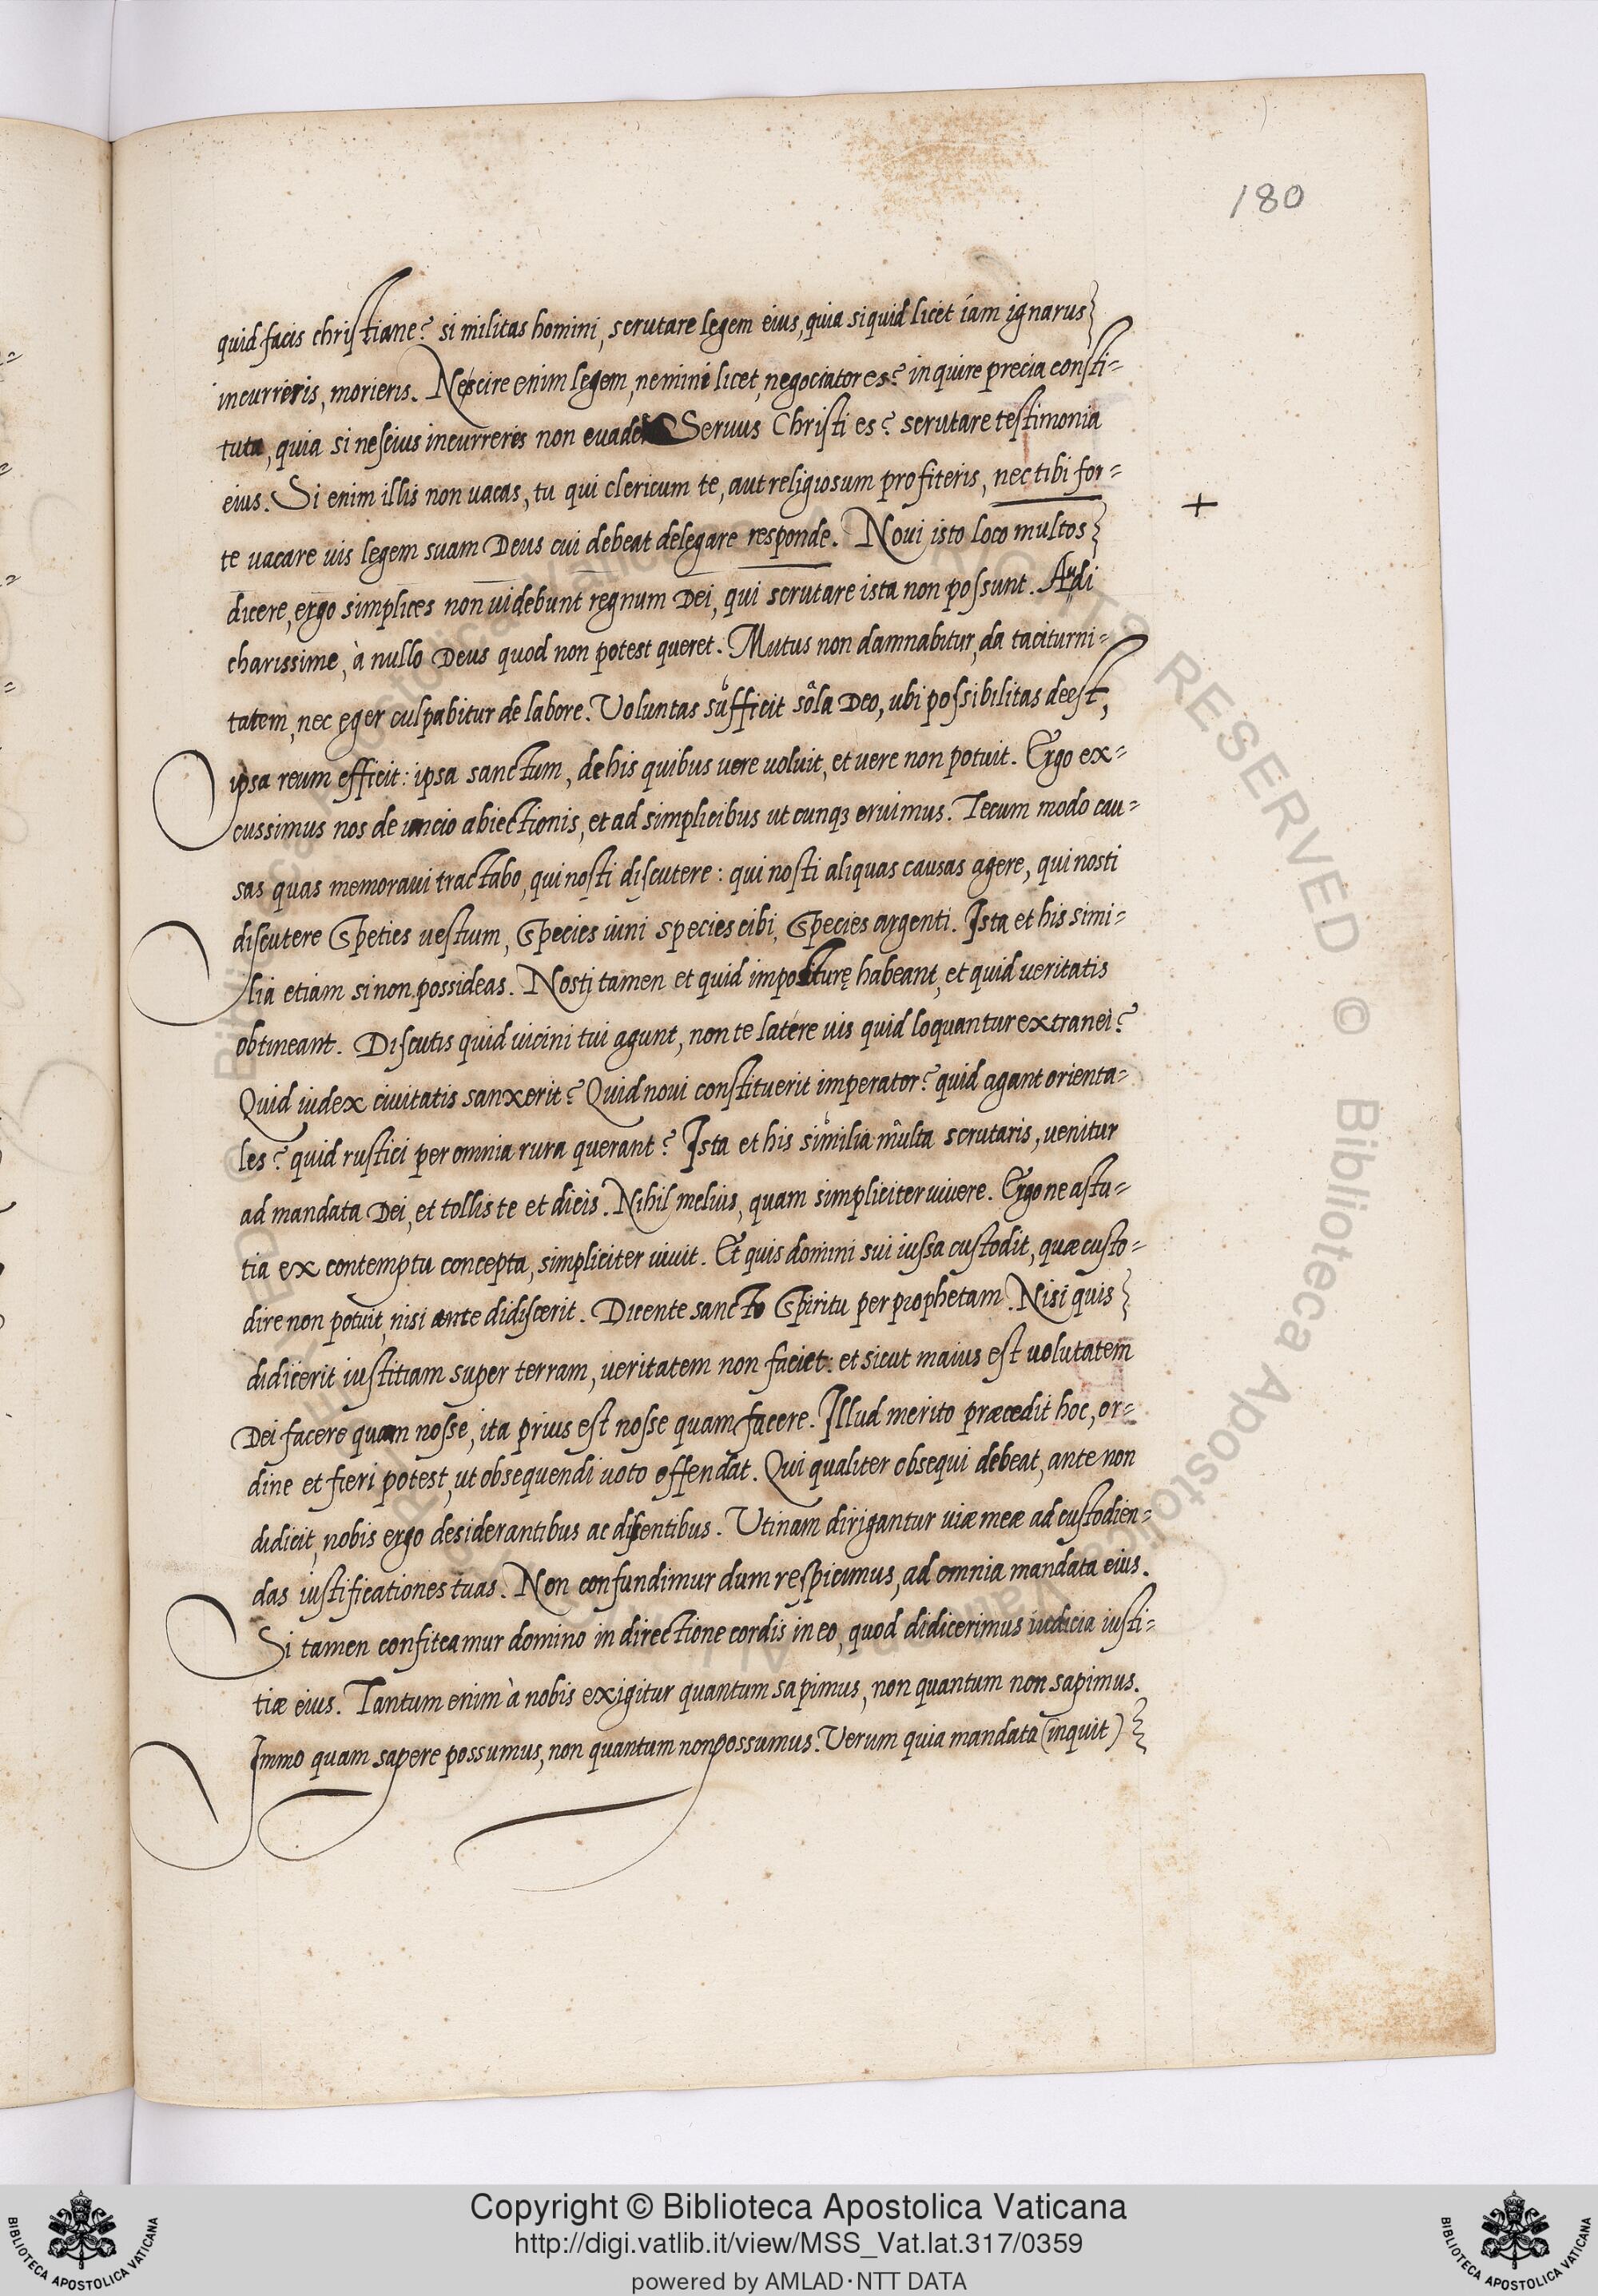 180
quid facis christiane? si militas homini, scrutare legem eius, quia siquid licet iam ignarus
incurreris, morieris. Nescire enim legem, nemini licet, negociator es? inquire precia consti=
tuta, quia si nescius incurreris non evades Servus Christi es? scrutare testimonia
eius. Si enim illis non vacas, tu qui clericum te, aut religiosum profiteris, nec tibi for=
te vacare vis legem suam Deus cui debeat delegare responde. Novi isto loco multos
dicere, ergo simplices non videbunt regnum Dei, qui scrutare ista non possunt. Audi
charissime, à nullo Deus quod non potest queret. Mutus non damnabitur, da taciturni=
tatem, nec eger culpabitur de labore. Voluntas sufficit sola Deo, ubi possibilitas deest,
ipsa reum efficit: ipsa sanctum, de his quibus vere voluit, et vere non potuit. Ergo ex=
cussimus nos de uncio abiectionis, et ad simplicibus ut cunq3 eruimus. Tecum modo cau=
sas quas memoravi tractabo, qui nosti discutere: qui nosti aliquas causas agere, qui nosti
discutere Speties vestium, Species vini species cibi, Species argenti. Ista et his simi=
lia etiam si non possideas. Nosti tamen et quid imposturę habeant, et quid veritatis
obtineant. Discutis quid vicini tui agunt, non te latere vis quid loquantur extranei?
Quid iudex civitatis sanxerit? Quid novi constituerit imperator? quid agant orienta=
les? quid rustici per omnia rura querant? Ista et his similia multa scrutaris, venitur
ad mandata Dei, et tollis te et dicis. Nihil melius, quam simpliciter vivere. Ergo ne astu=
tia ex contemptu concepta, simpliciter vivit. Et quis domini sui iussa custodit, quæ custo=
dire non potuit, nisi ante didiscerit. Dicente sancto Spiritu per prophetam. Nisi quis
didicerit iustitiam super terram, veritatem non faciet: et sicut maius est volutatem
Dei facere quam nosse, ita prius est nosse quam facere. Illud merito præcedit hoc, or=
dine et fieri potest, ut obsequendi voto offendat. Qui qualiter obsequi debeat, ante non
didicit, nobis ergo desiderantibus ac disentibus. Utinam dirigantur viæ meæ ad custodien=
das iustificationes tuas. Non confundimur dum respicimus, ad omnia mandata eius.
Si tamen confiteamur domino in directione cordis in eo, quod didicerimus iudicia iusti=
tiæ eius. Tantum enim à nobis exigitur quantum sapimus, non quantum non sapimus.
Immo quam sapere possumus, non quantum non possumus. Verum quia mandata (inquit)
Copyright © Biblioteca Apostolica Vaticana
http://digi.vatlib.it/view/MSS_Vat.lat.317/0359
powered by AMLAD·NTT DATA
BIBLIOTECA APOSTOLICA VATICANA
BIBLIOTECA APOSTOLICA VATICANA